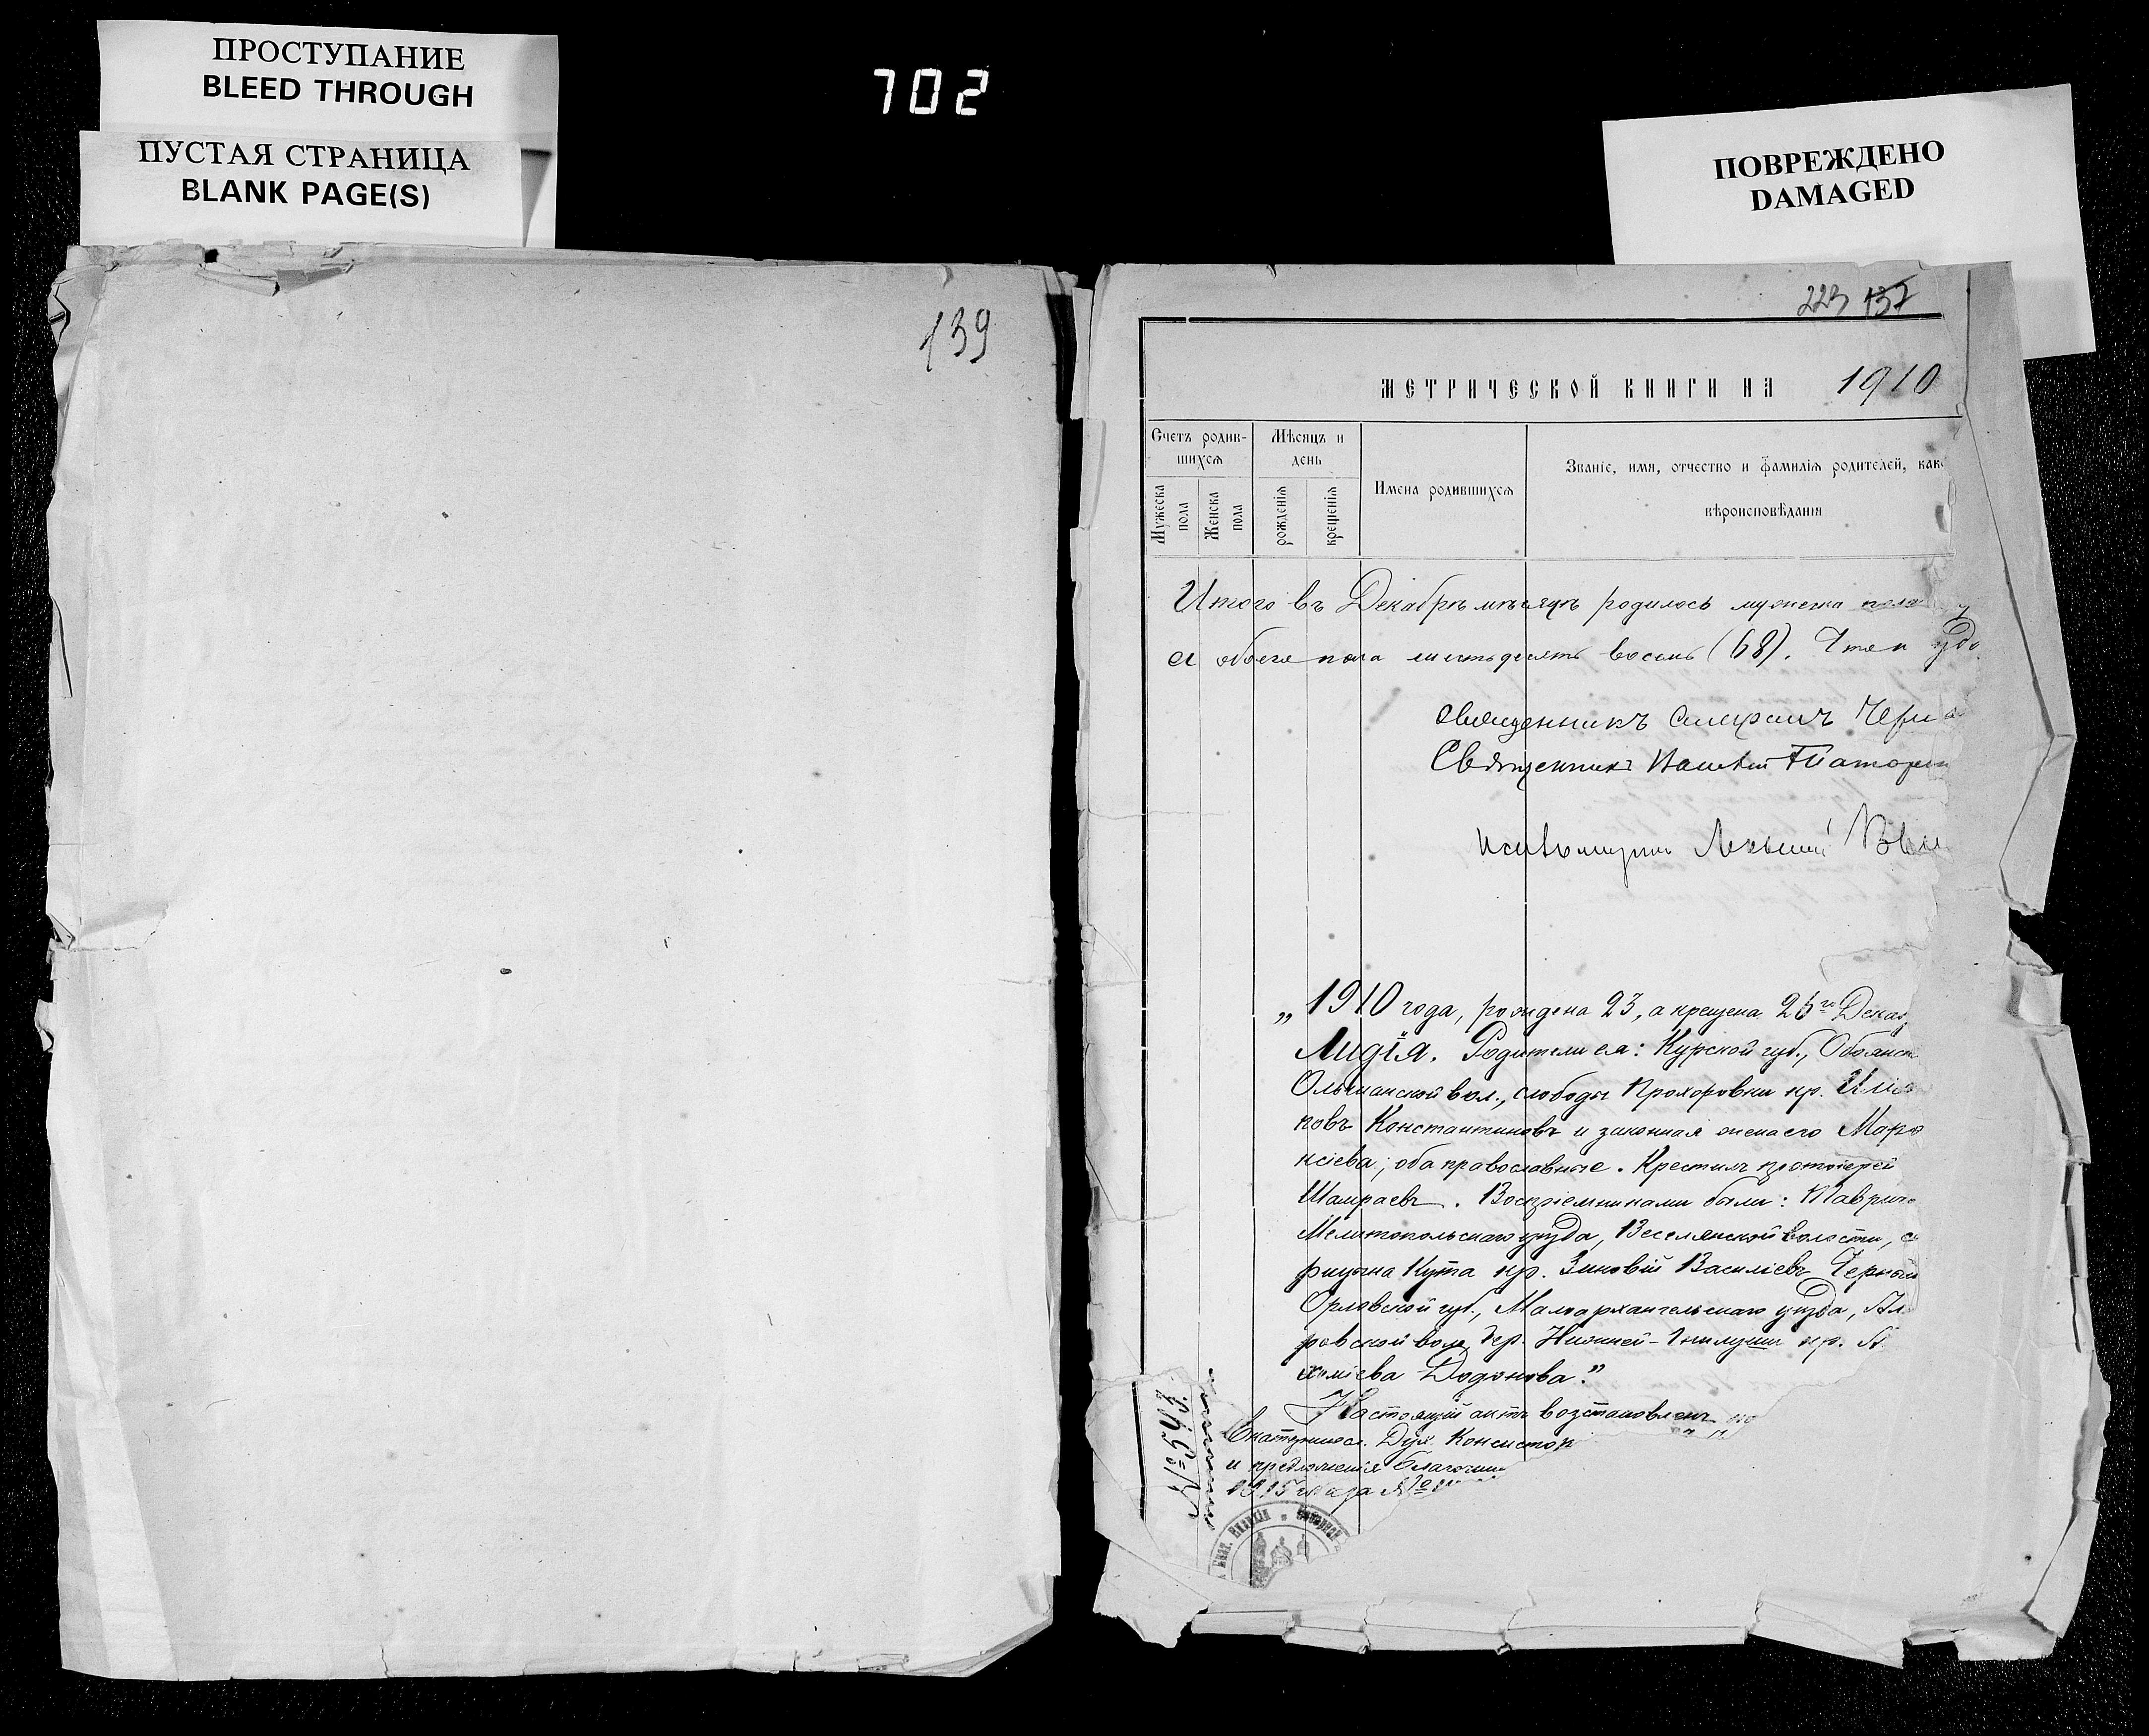 ПРОСТУПАНИЕ
BLEED THROUGH
ПУСТАЯ СТРАНИЦА
BLANK PAGE(S)
702
ПОВРЕЖДЕНО
DAMAGED
139
223 137
МЕТРИЧЕСКОЙ КНИГИ НА 1910
Счетъ родив-
шихся
Мѣсяцъ и
день
Имена родившихся
Званіе, имя, отчество и фамилія родителей, как
вѣроисповѣданія
Мужеска
пола
Женска
пола
рожденія
крещенія
Итого въ Декабрѣ мѣсяцѣ родилось мужеска пола
а обоего пола шестьдесятъ восемь (68). Что и удо
Священникъ Черн
Священникъ
Псаломщикъ
„1910 года, рождена 23, а крещена 26го Декаб
Лидія. Родители ея: Курской губ., Обоянск
Ольшанской вол., слободы Прохоровки кр.
новъ Константиновъ и законная жена его Мар
ксіева; оба православные. Крестилъ протоіерей
Шамраевъ. Воспріемниками были: Тавриче
Мелитопольскаго уѣзда, Веселянской волости, с
рицына Кута кр. Зиновій Василіевъ Черный
Орловской губ., Малоархангельскаго уѣзда, Ал
ровской вол. дер. Нижней-Гнилуши кр. А
Додонова."
Настоящій актъ возстановленъ
Екатериносл. Дух. Консистор
и предложенія благочин
1915 года №